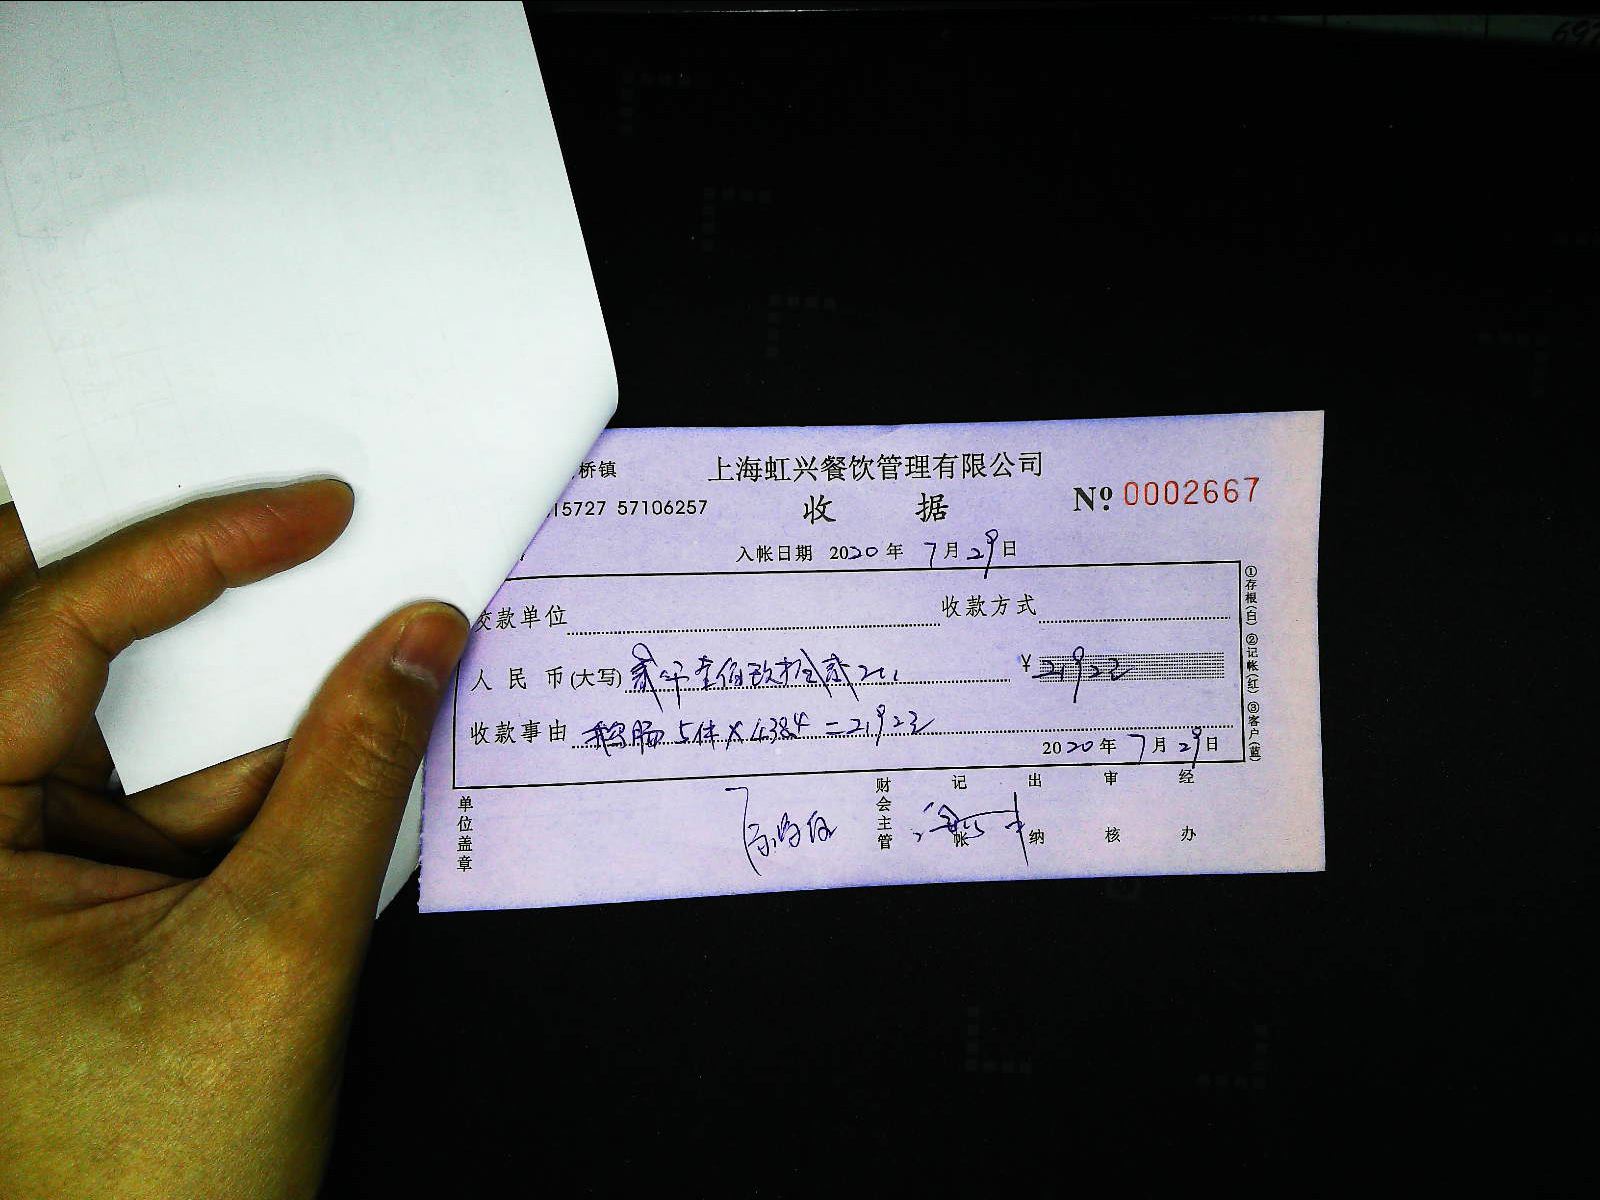 桥镇
上海虹兴餐饮管理有限公司
15727 57106257
收 据
№ 0002667
入帐日期 2020年 7月29日
交款单位
收款方式
人民币(大写) 贰仟壹佰玖拾贰元
¥ 2192元
收款事由 鹅肠 5件×438.4=2192元
2020年 7月29日
①存根(白) ②记帐(红) ③客户(蓝)
单位盖章
财会主管
记帐
出纳
审核
经办